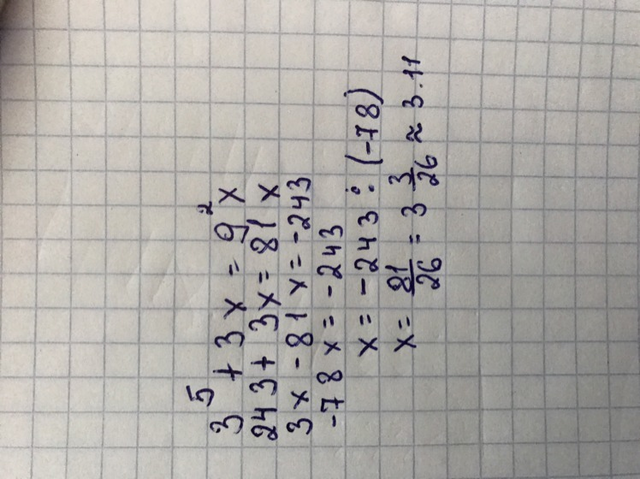 3⁵ + 3x = 9²x
243 + 3x = 81x
3x - 81x = -243
-78x = -243
x = -243 : (-78)
x = 81/26 = 3 3/26 ≈ 3.11